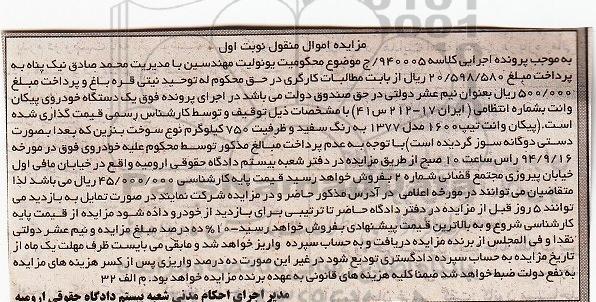 مزایده اموال منقول نوبت اول
به موجب پرونده اجرایی کلاسه ۹۴۰۰۰۵/ج موضوع محکومیت یونولیت مهندسین با مدیریت محمد صادق نیک پناه به
پرداخت مبلغ ۲۰/۵۹۸/۵۸۰ ریال از بابت مطالبات کارگری در حق محکوم له توحید نیتی قره باغ و پرداخت مبلغ
۵۰۰/۰۰۰ ریال بعنوان نیم عشر دولتی در حق صندوق دولت می باشد در اجرای پرونده فوق یک دستگاه خودروی پیکان
وانت بشماره انتظامی ( ایران ۱۷-۲۱۲ س ۴۱) با مشخصات ذیل توقیف و توسط کارشناس رسمی قیمت گذاری شده
است.(پیکان وانت تیپ ۱۶۰۰ مدل ۱۳۷۷ به رنگ سفید و ظرفیت ۷۵۰ کیلوگرم نوع سوخت بنزین که بعدا بصورت
دستی دوگانه سوز گردیده است)با توجه به عدم پرداخت مبالغ مذکور توسط محکوم علیه خودروی فوق در مورخه
۹۴/۹/۱۶ راس ساعت ۱۰ صبح از طریق مزایده در دفتر شعبه بیستم دادگاه حقوقی ارومیه واقع در خیابان مافی اول
خیابان پیروزی مجتمع قضائی شماره ۲ بفروش خواهد رسید قیمت پایه کارشناسی ۴۵/۰۰۰/۰۰۰ ریال می باشد لذا
متقاضیان می توانند در مورخه اعلامی در آدرس مذکور حاضر و در مزایده شرکت نمایند در صورت تمایل به بازدید می
توانند ۵ روز قبل از مزایده در دفتر دادگاه حاضر تا ترتیبی برای بازدید از خودرو داده شود مزایده از قیمت پایه
کارشناسی شروع و به بالاترین قیمت پیشنهادی بفروش خواهد رسید-۱۰٪ ده درصد مبلغ مزایده و نیم عشر دولتی
نقدا و فی المجلس از برنده مزایده دریافت و به حساب سپرده واریز خواهد شد و مابقی می بایست ظرف مهلت یک ماه از
تاریخ مزایده به حساب سپرده دادگستری تودیع شود در غیر این صورت ده درصد واریزی پس از کسر هزینه های مزایده
به نفع دولت ضبط خواهد شد ضمنا کلیه هزینه های قانونی به عهده برنده مزایده خواهد بود. م الف ۳۲
مدیر اجرای احکام مدنی شعبه بیستم دادگاه حقوقی ارومیه